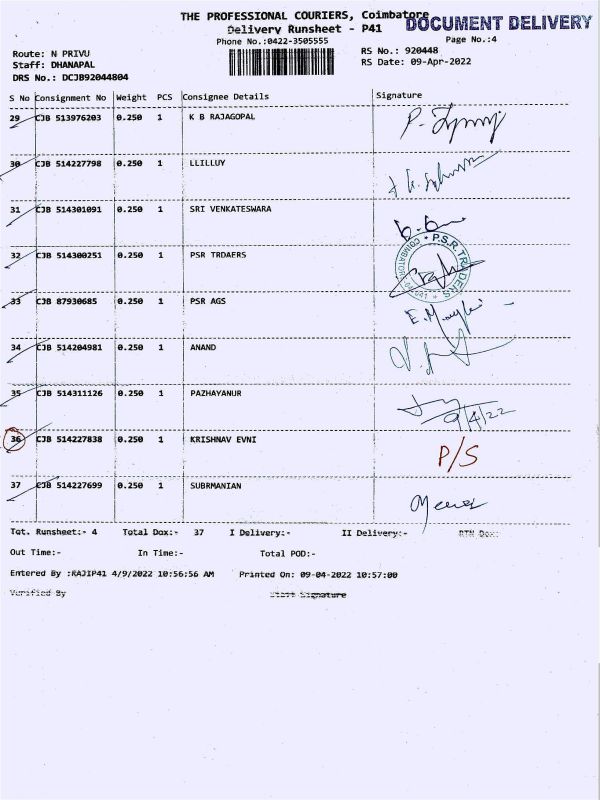 THE PROFESSIONAL COURIERS, Coimbatore
DOCUMENT DELIVERY
Delivery Runsheet - P41
Phone No.:0422-3505555
Page No.:4
Route: N PRIVU
RS No.: 920448
Staff: DHANAPAL
RS Date: 09-Apr-2022
DRS No.: DCJB92044804
S No Consignment No Weight PCS Consignee Details Signature
29 CJB 513976203 0.250 1 K B RAJAGOPAL
30 CJB 514227798 0.250 1 LLILLUY
31 CJB 514301091 0.250 1 SRI VENKATESWARA
32 CJB 514300251 0.250 1 PSR TRDAERS
P.S.R. TRADERS
COIMBATORE
33 CJB 87930685 0.250 1 PSR AGS
34 CJB 514204981 0.250 1 ANAND
35 CJB 514311126 0.250 1 PAZHAYANUR
9/4/22
36 CJB 514227838 0.250 1 KRISHNAV EVNI P/S
37 CJB 514227699 0.250 1 SUBRMANIAN
Tot. Runsheet:- 4 Total Dox:- 37 I Delivery:- II Delivery:- RTN Dox:
Out Time:- In Time:- Total POD:-
Entered By :RAJIP41 4/9/2022 10:56:56 AM Printed On: 09-04-2022 10:57:00
Verified By Staff Signature